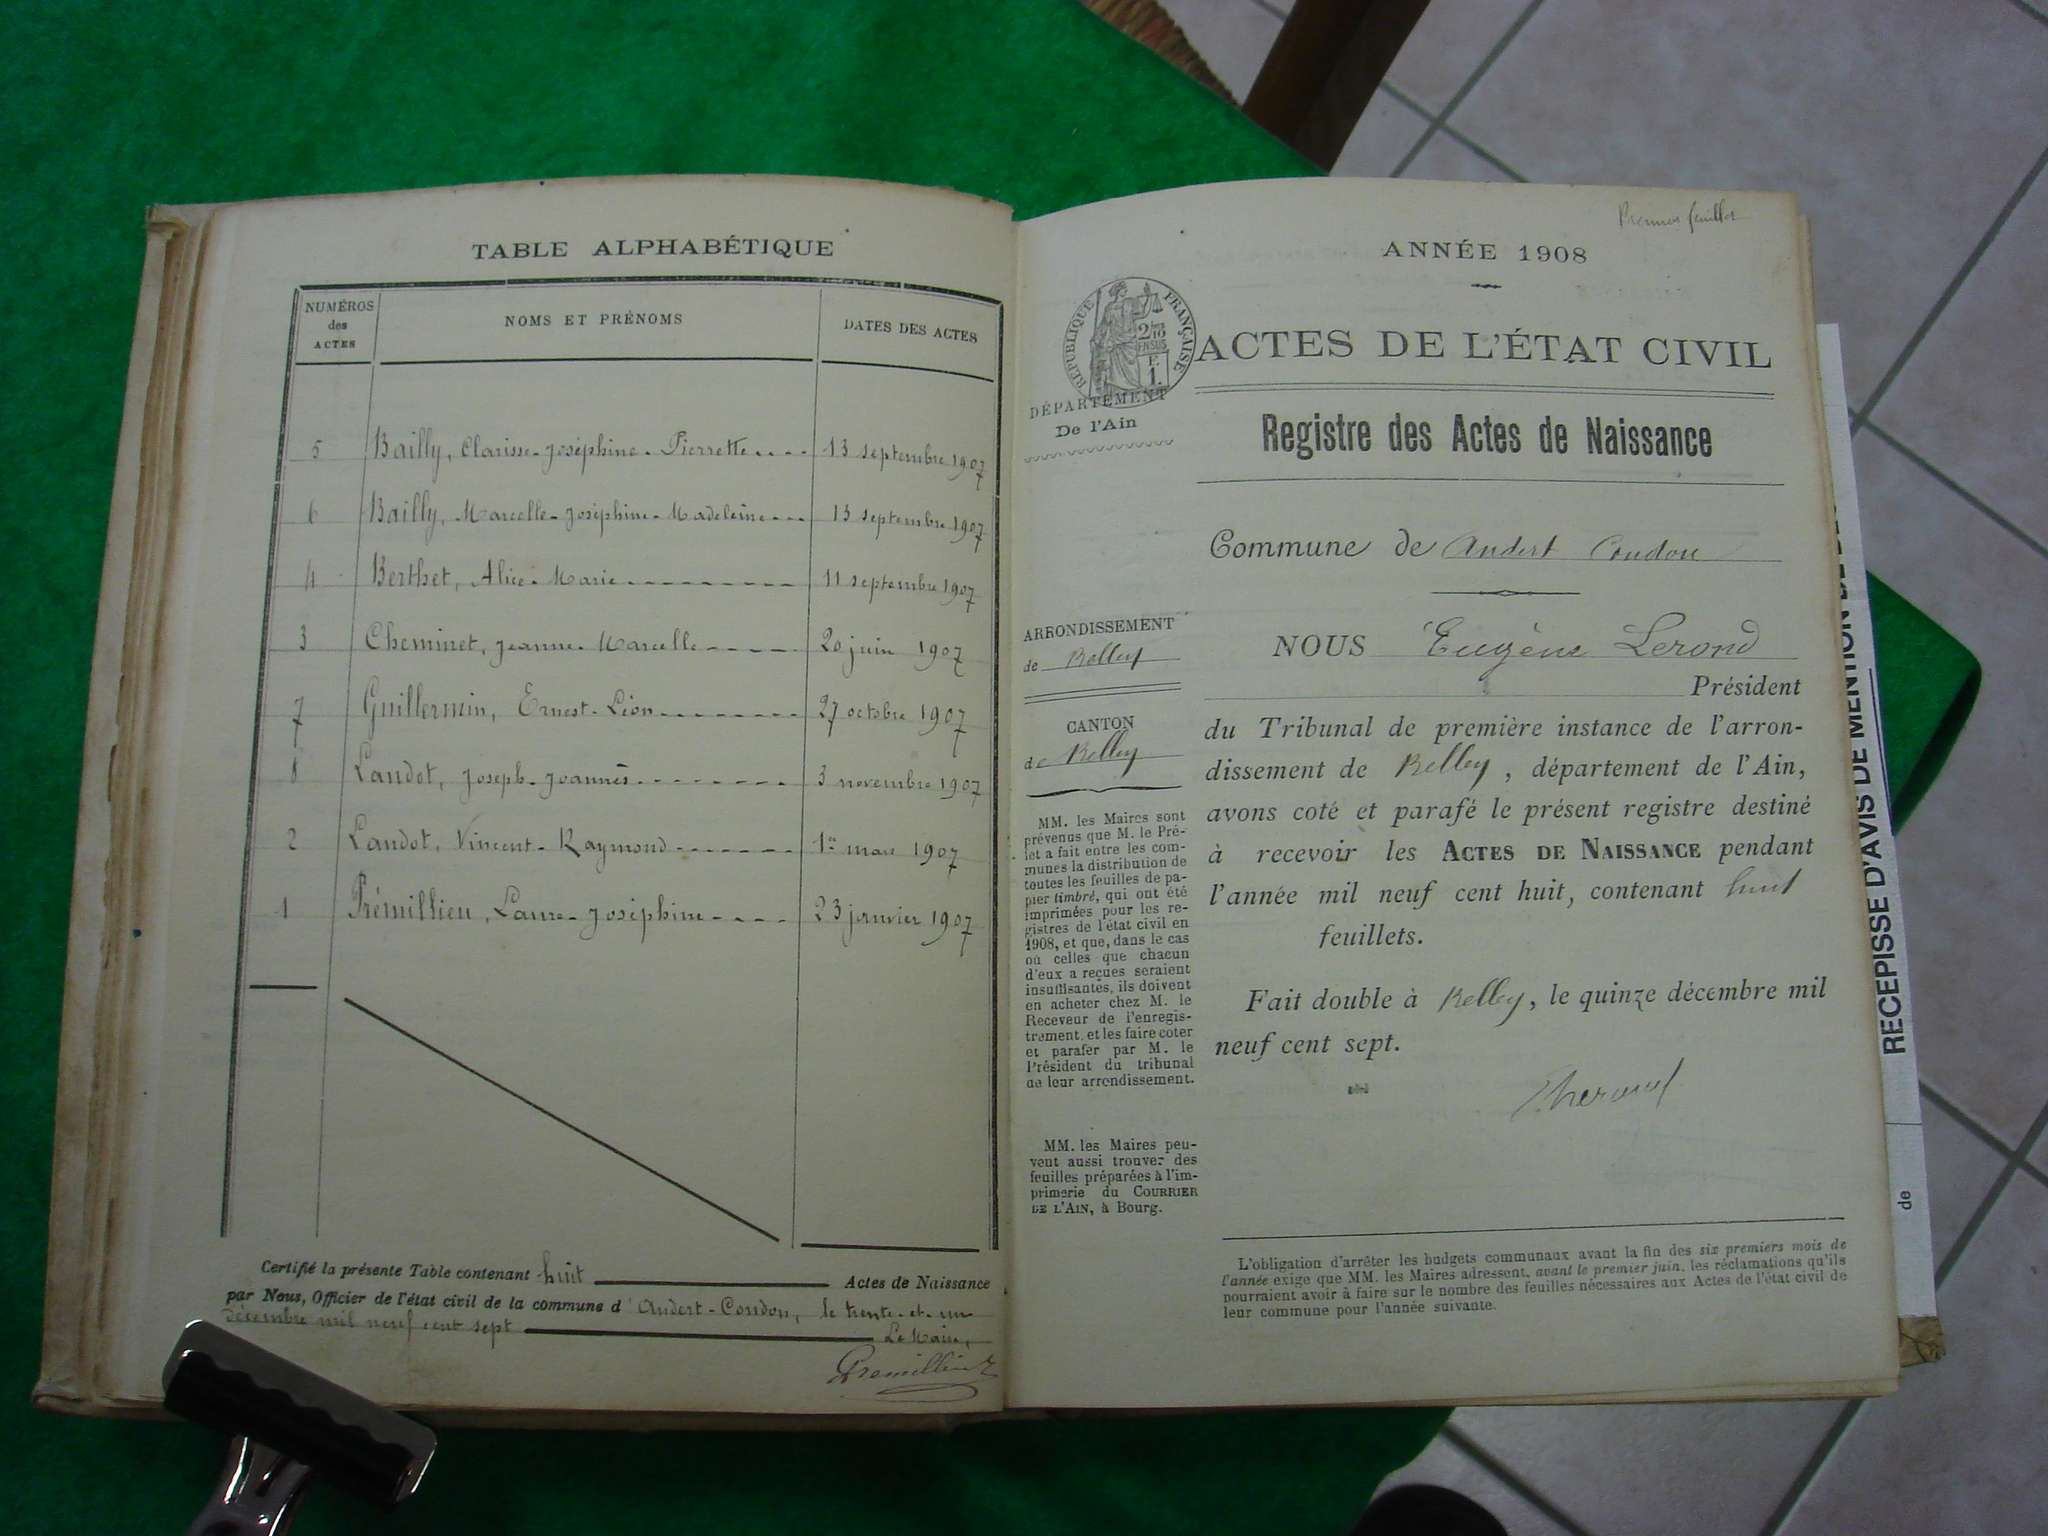 TABLE ALPHABÉTIQUE
NUMÉROS
des
ACTES
NOMS ET PRÉNOMS
DATES DES ACTES
5 Bailly, Clarisse-Joséphine-Pierrette 13 septembre 1907
6 Bailly, Marcelle-Joséphine-Madeleine 13 septembre 1907
4 Berthet, Alice-Marie 11 septembre 1907
3 Cheminet, Jeanne-Marcelle 20 juin 1907
7 Guillermin, Ernest-Léon 27 octobre 1907
8 Landot, Joseph-Joannès 3 novembre 1907
2 Landot, Vincent-Raymond 1er mars 1907
1 Prémillieu, Laure-Joséphine 23 janvier 1907
Certifié la présente Table contenant huit Actes de Naissance
par Nous, Officier de l'état civil de la commune d'Andert-Condon, le trente-et-un
décembre mil neuf cent sept
Le Maire,
Premillieu
Premier feuillet
ANNÉE 1908
RÉPUBLIQUE FRANÇAISE
ACTES DE L'ÉTAT CIVIL
DÉPARTEMENT
De l'Ain
Registre des Actes de Naissance
Commune de Andert Condon
ARRONDISSEMENT
de Belley
CANTON
de Belley
MM. les Maires sont
prévenus que M. le Pré-
fet a fait entre les com-
munes la distribution de
toutes les feuilles de pa-
pier timbré, qui ont été
imprimées pour les re-
gistres de l'état civil en
1908, et que, dans le cas
où celles que chacun
d'eux a reçues seraient
insuffisantes, ils doivent
en acheter chez M. le
Receveur de l'enregis-
trement, et les faire coter
et parafer par M. le
Président du tribunal
de leur arrondissement.
MM. les Maires peu-
vent aussi trouver des
feuilles préparées à l'im-
primerie du COURRIER
DE L'AIN, à Bourg.
NOUS Eugène Lerond
Président
du Tribunal de première instance de l'arron-
dissement de Belley, département de l'Ain,
avons coté et parafé le présent registre destiné
à recevoir les ACTES DE NAISSANCE pendant
l'année mil neuf cent huit, contenant huit
feuillets.
Fait double à Belley, le quinze décembre mil
neuf cent sept.
L'obligation d'arrêter les budgets communaux avant la fin des six premiers mois de
l'année exige que MM. les Maires adressent, avant le premier juin, les réclamations qu'ils
pourraient avoir à faire sur le nombre des feuilles nécessaires aux Actes de l'état civil de
leur commune pour l'année suivante.
RECEPISSE D'AVIS DE MENTION
de